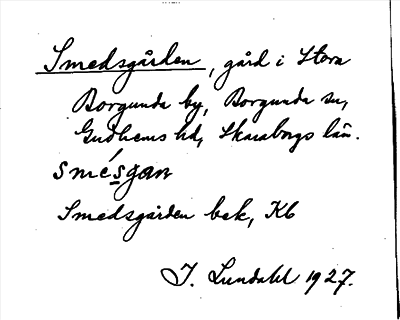 Smedsgården, gård i Stora
Borgunda by, Borgunda sn,
Gudhems hd, Skaraborgs län.
smésgan
Smedsgården bek, Kb
I. Lundahl 1927.